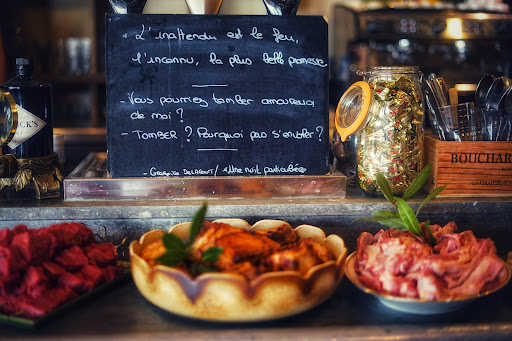 "L'inattendu est le feu,
l'inconnu, la plus belle promesse
- Vous pourriez tomber amoureux
de moi ?
- TOMBER ? Pourquoi pas s'envoler ?
- Grégoire DELACOURT / "Une nuit particulière
CK'S
BOUCHAR